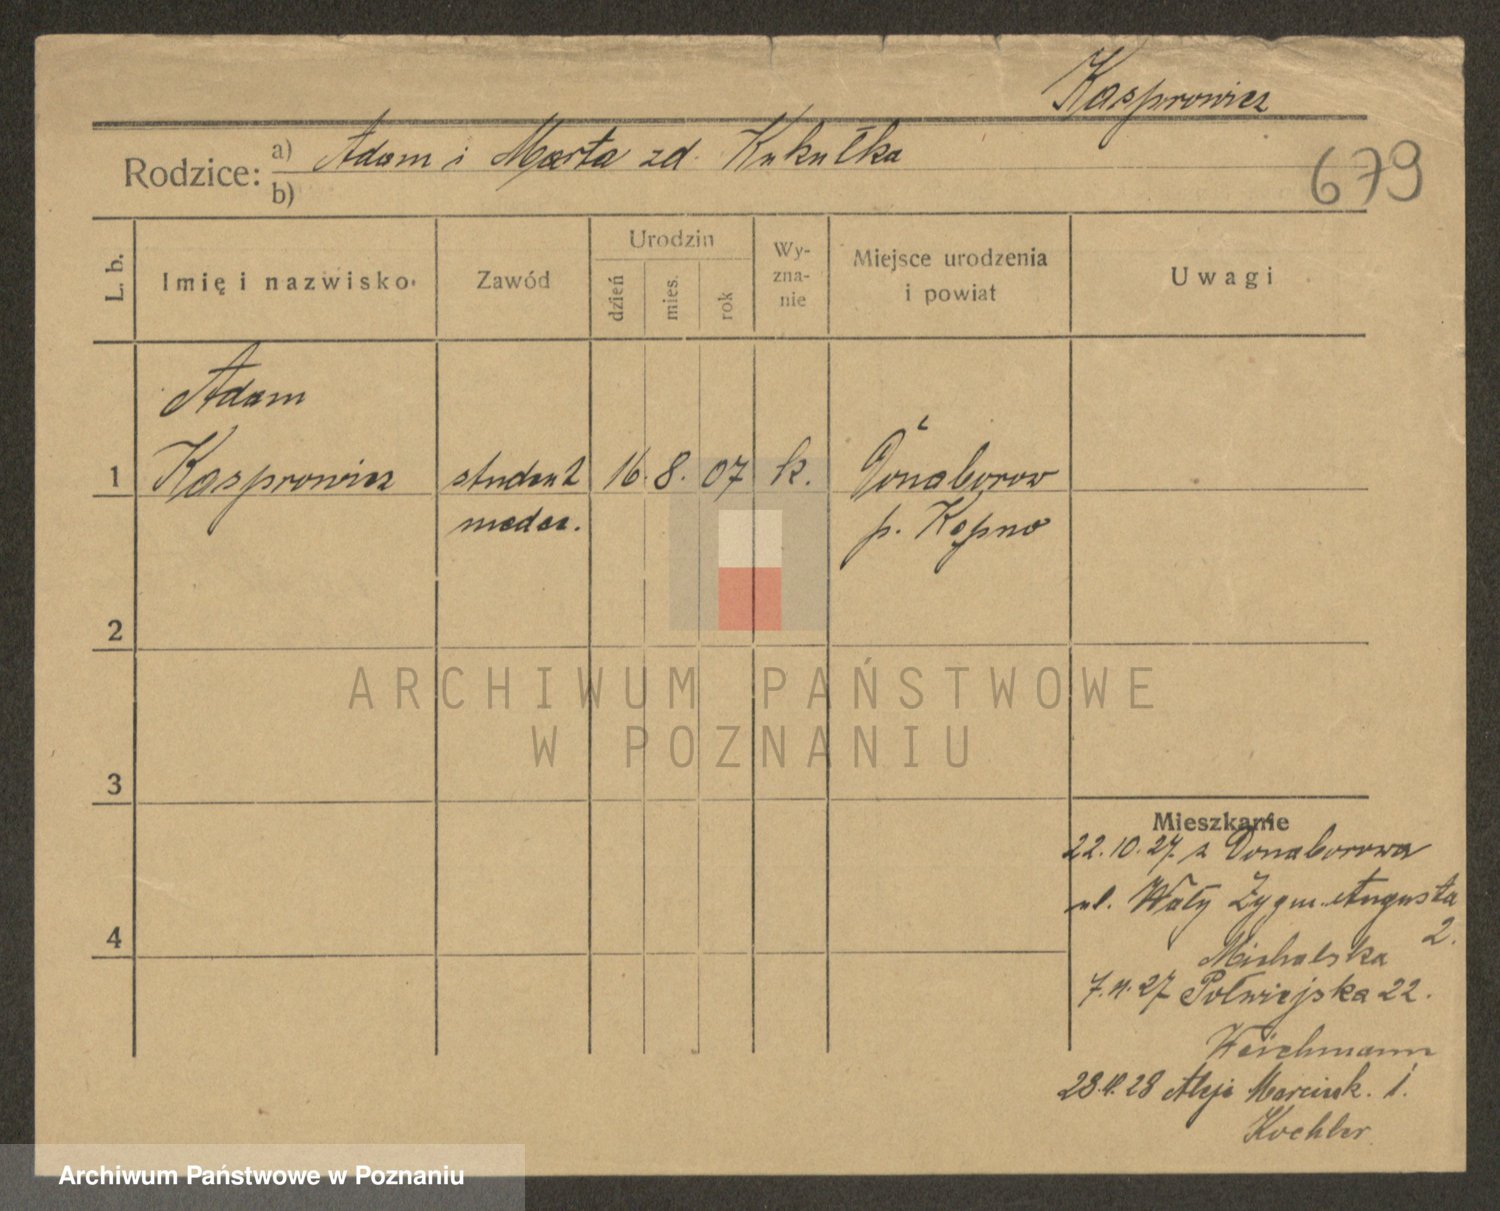 Kasprowicz
Rodzice: a) Adam i Marta zd. Kukułka
b)
679
L. b.
Imię i nazwisko
Zawód
Urodzin
dzień
mies.
rok
Wy-
zna-
nie
Miejsce urodzenia
i powiat
Uwagi
Adam
1 Kasprowicz student 16. 8. 07 k. Donaborow
p. Kępno
2
3
4
Mieszkanie
22.10.27. z Donaborowa
ul. Wały Zygm. Augusta
2.
Michalska
7.11.27 Półwiejska 22.
Weichmann
28. 28 Aleje Marcink. 1.
Koehler
ARCHIWUM PAŃSTWOWE
W POZNANIU
Archiwum Państwowe w Poznaniu